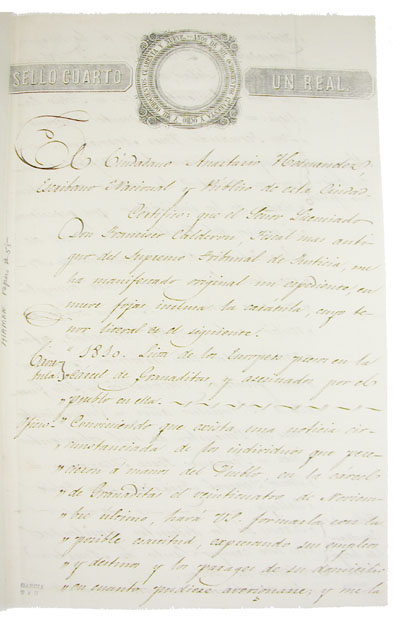 SELLO CUARTO
UN REAL.
El Ciudadano Anastacio Hernandez,
Escribano Nacional y Publico de esta Ciudad
Certifico: que el Señor Licenciado
Don Francisco Calderon, Fiscal mas anti-
guo del Supremo Tribunal de Justicia, me
ha manifestado original un espediente, en
nueve fojas inclusa la carátula, cuyo te-
nor literal es el siguiente.
Cara-
tula
" 1810. Lista de los Europeos presos en la
carcel de Granaditas, y asesinados por el
pueblo en ella.
Oficio
" Conviniendo que exista una noticia cir-
" cunstanciada de los individuos que pere-
" cieron á manos del Pueblo, en la cárcel
" de Granaditas el veinticuatro de Noviem-
" bre último, hará VS formarla con la
" posible exactitud, expresando sus empleos
" y destinos y los parages de su domicilio
" en cuanto pudiese averiguarse; y me la